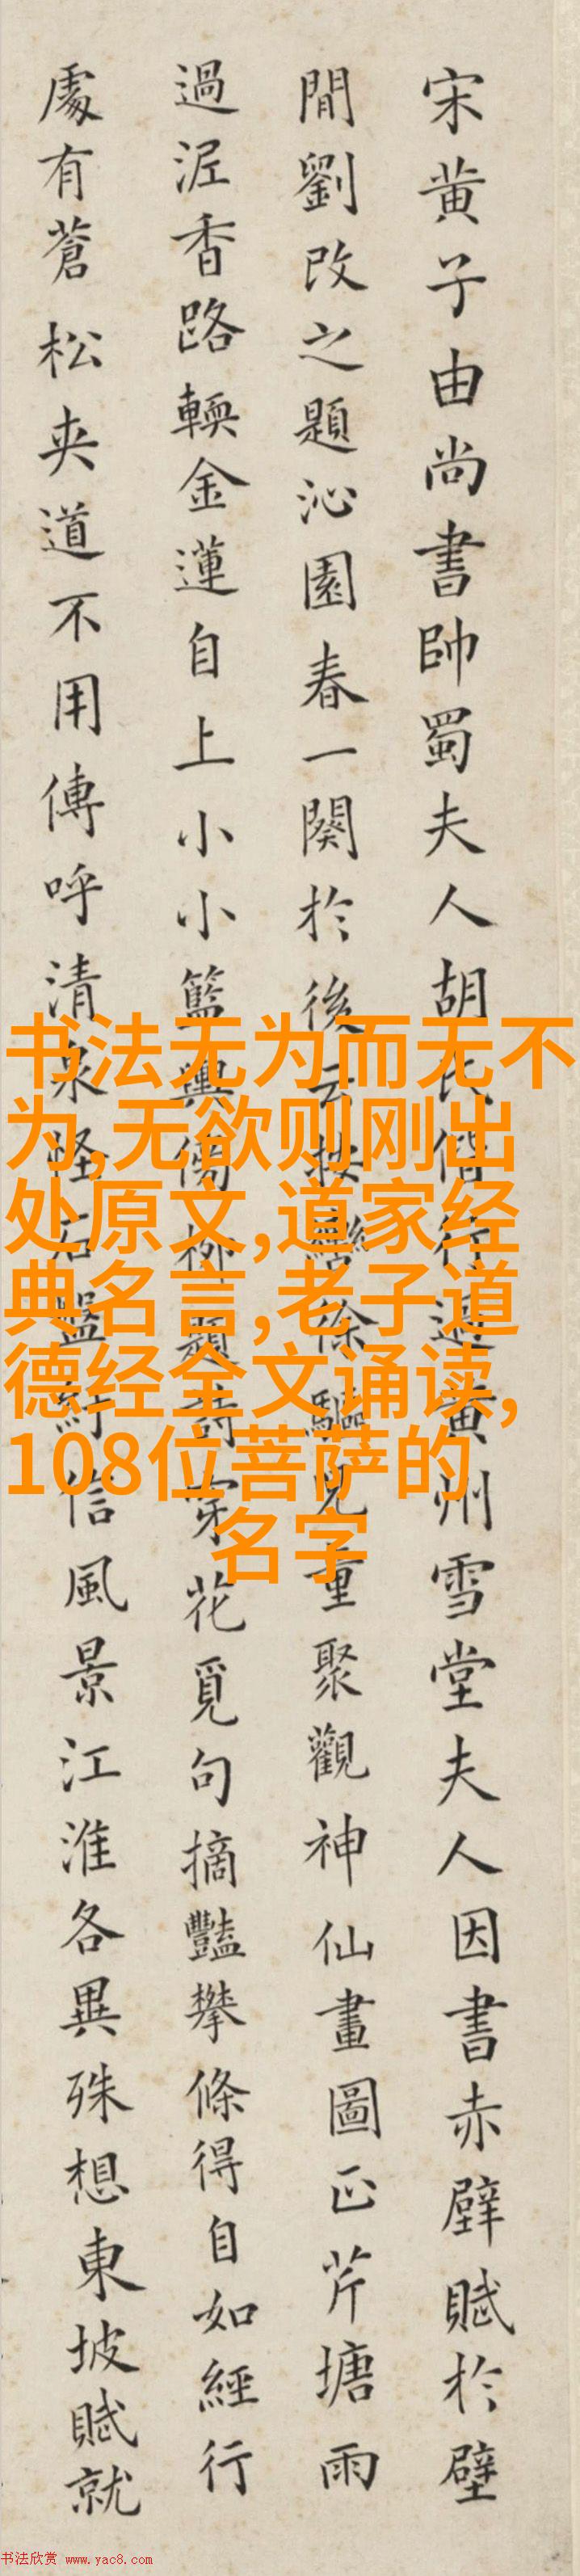 宋黄子由尚書帥蜀夫人胡氏偕行過黄州雪堂夫人因書赤壁賦於壁
間劉改之題沁園春一闋於後云按轡徐驅兒童聚觀神仙畫圖正芹塘雨
過泥香路輭金蓮自上小小籃輿傍柳題詩穿花覓句摘豔攀條得自如經行
處有蒼松夾道不用傳呼清泉怪石盤紆信風景江淮各異殊想東坡賦就
书法无为而无不
为,无欲则刚出
处原文,道家经
典名言,老子道
德经全文诵读,
108位菩萨的
名字
书法欣赏 www.yac8.com